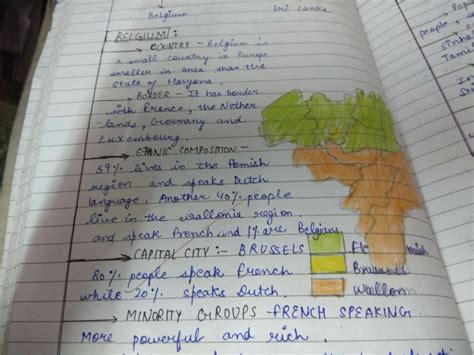 Belgium Sri Lanka
BELGIUM :
→ COUNTRY - Belgium is
a small country in Europe
smaller in area than the
State of Haryana.
→ BORDER - It has border
with France, the Nether
-lands, Germany and
Luxembourg.
→ ETHNIC COMPOSITION -
59% lives in the Flemish
region and speaks Dutch
language. Another 40% people
live in the wallonia region
and speak french and 1% are Belgians
→ CAPITAL CITY :- BRUSSELS
80% people speak french
while 20% speaks Dutch.
→ MINORITY GROUPS - FRENCH SPEAKING.
More powerful and rich.
Brussels
Walloon
people,
Sinha
Tam